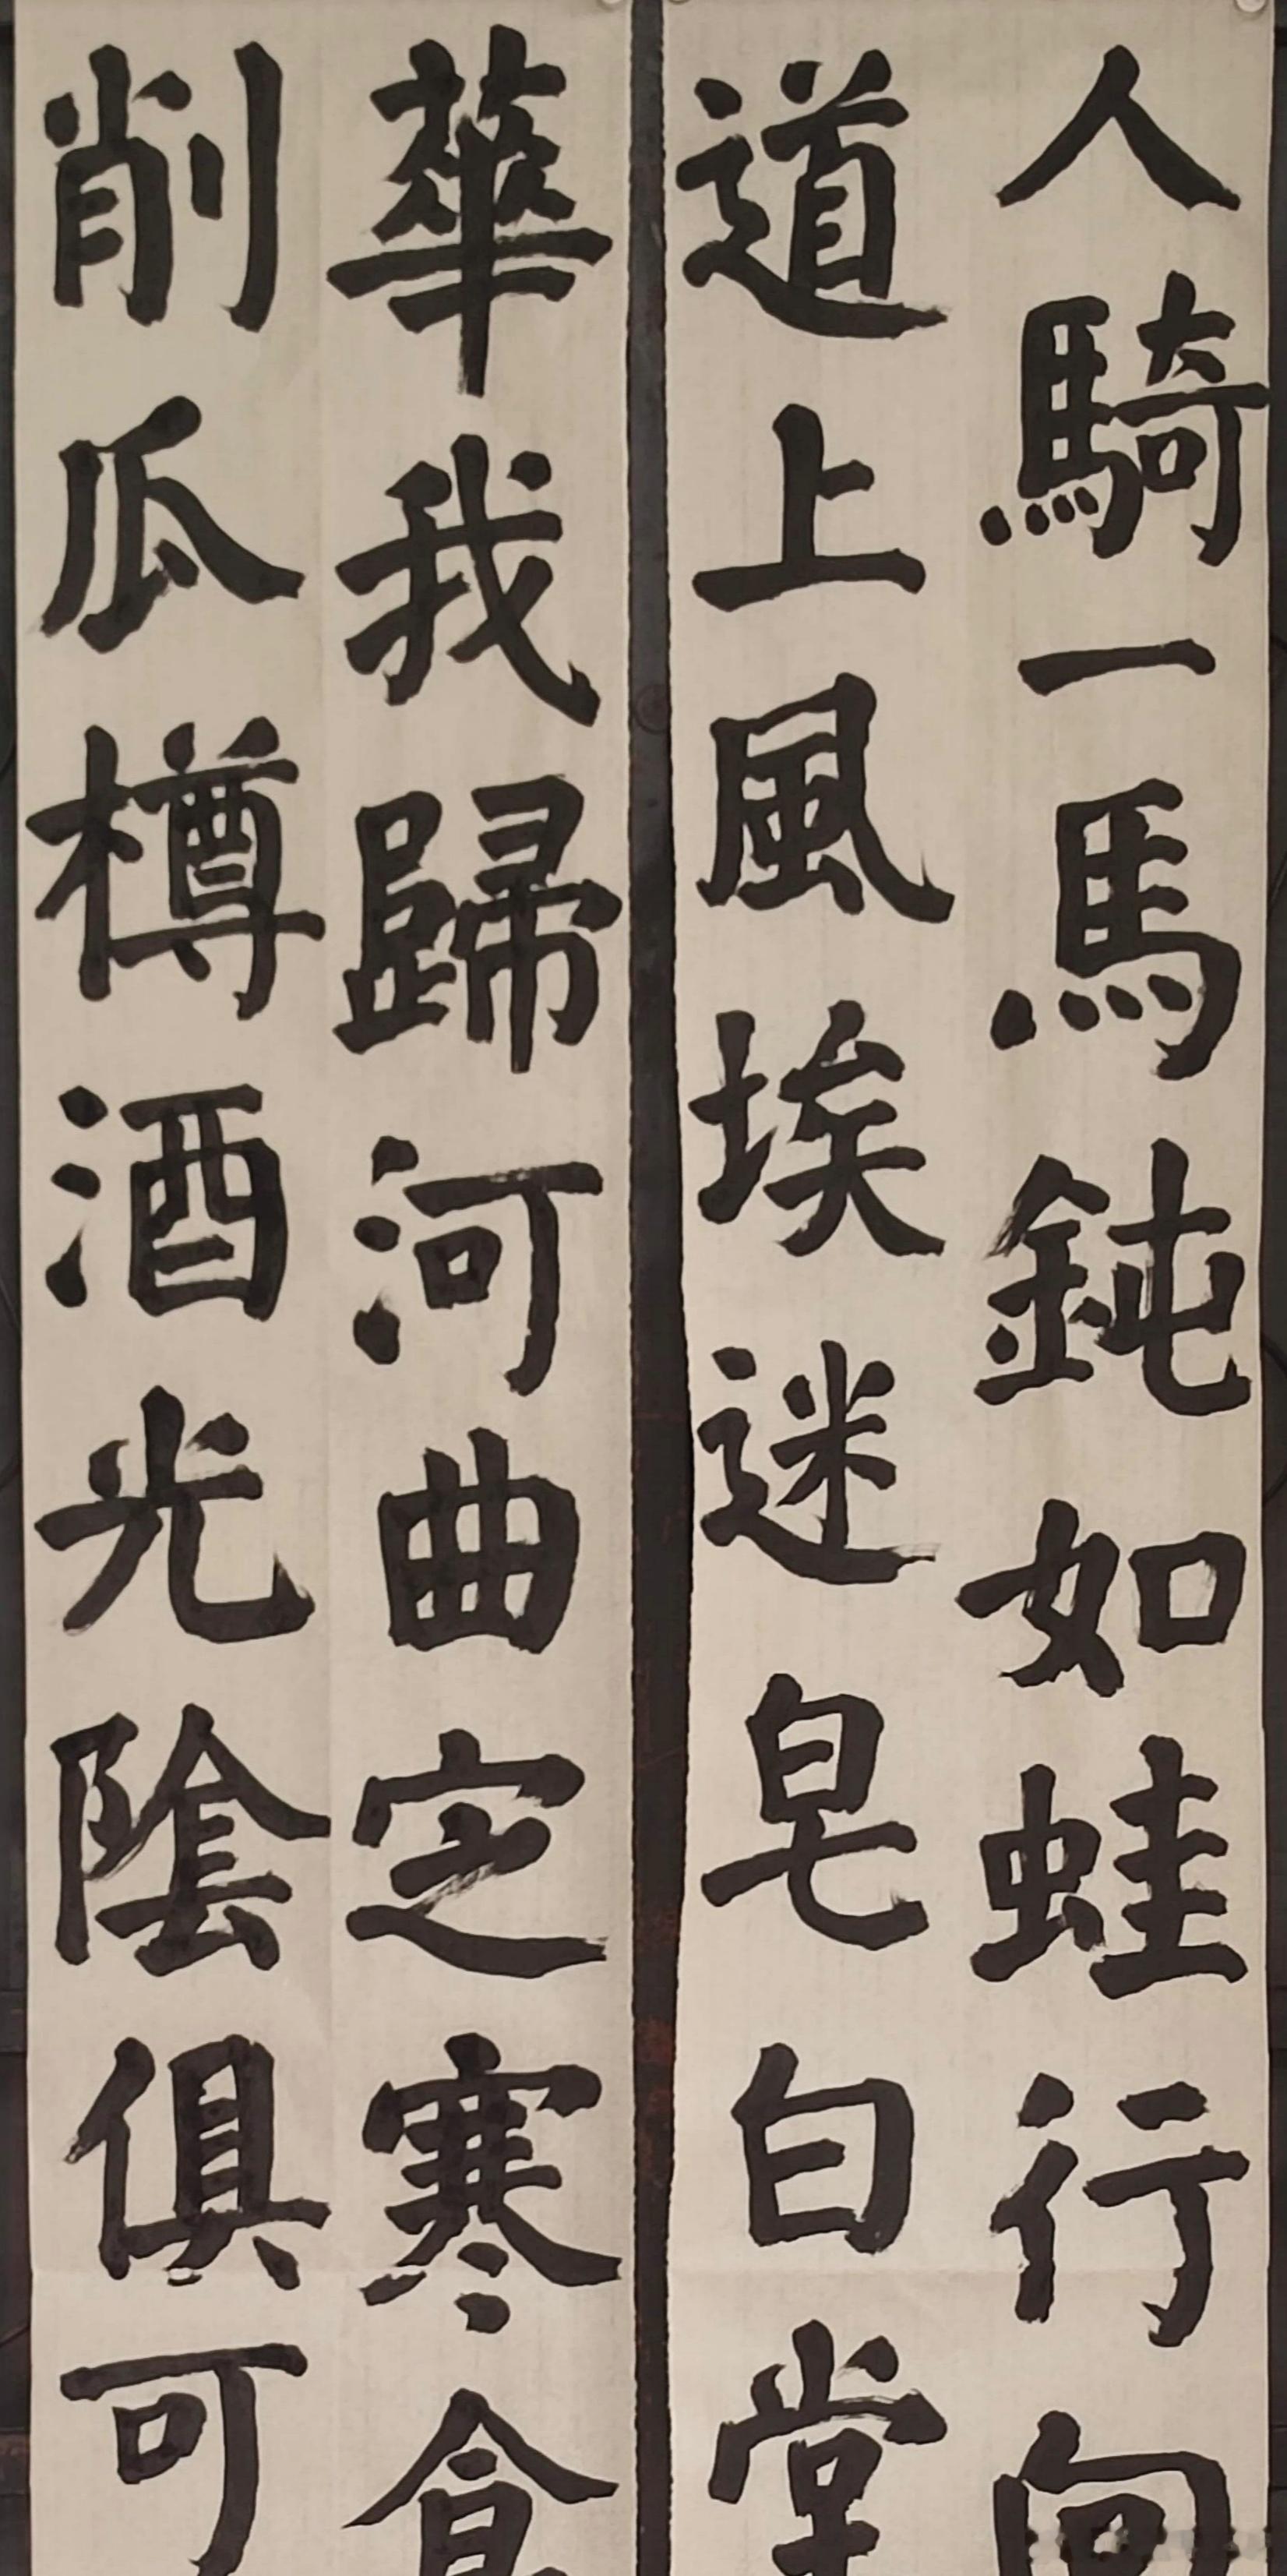 人騎一馬鈍如蛙行向
道上風埃迷皂白堂
華我歸河曲定寒食
削瓜樽酒光陰俱可